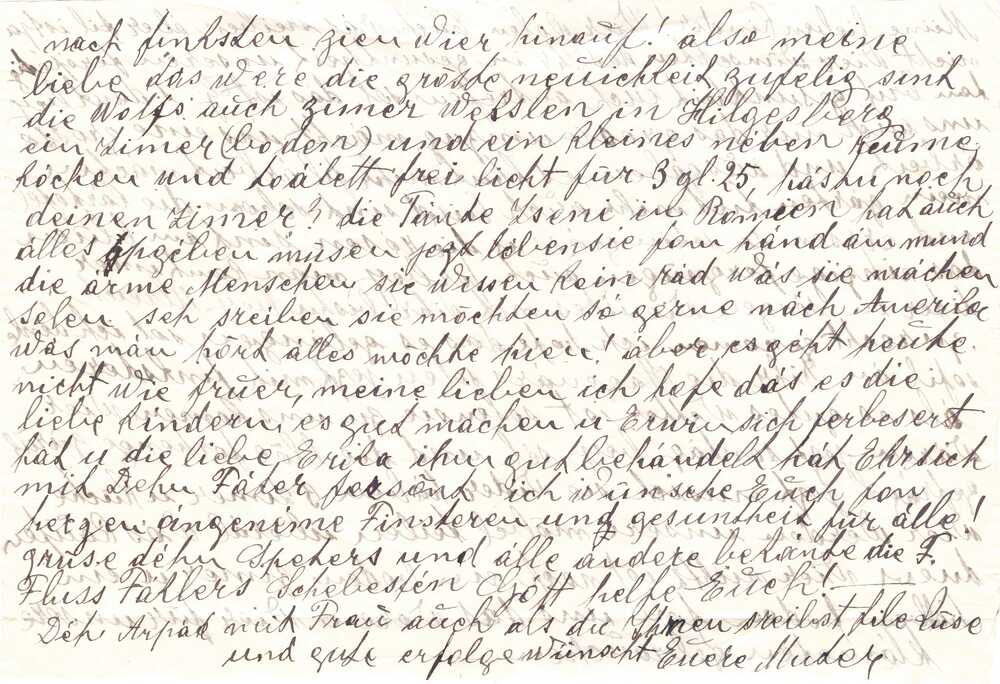 nach finksten zien wier hinauf! also meine
liebe das were die groste neuichkeit zufelig sint
die Wolfs auch zimer Wekslen in Hilgesberg
ein zimer (boden) und ein kleines neben reume
köchen und toálett frei licht für 3 gl. 25, hástu noch
deinen zimer? die Tánte Zseni in Romeen hat auch
álles ápgében müsen jezt lében sie fom hánd am mund
die árme Menschen sie wissen kein rád wás sie máchen
solen seh sreiben sie möchten so gerne nách Amerika
wás mán hört álles möchte hien! áber es géht heute
nicht wie früer, meine lieben ich hofe dás es die
liebe kindern es gut máchen u Erwin sich ferbesert
hát u die liebe Erika ihm gut behándelt hát Ehr sich
mit Dehn Fáter fersönt ich wünsche Euch fon
herzen ángenéme Finsteren und gesuntheit für álle!
grüse déhn Speters und álle ándere bekánte die F.
Fluss Fállers Schebestén Gott helfe Euch!
Déh Arpád mit Frau auch als du Ihnen sreibst file küse
und gute erfolge wünscht Euere Muder